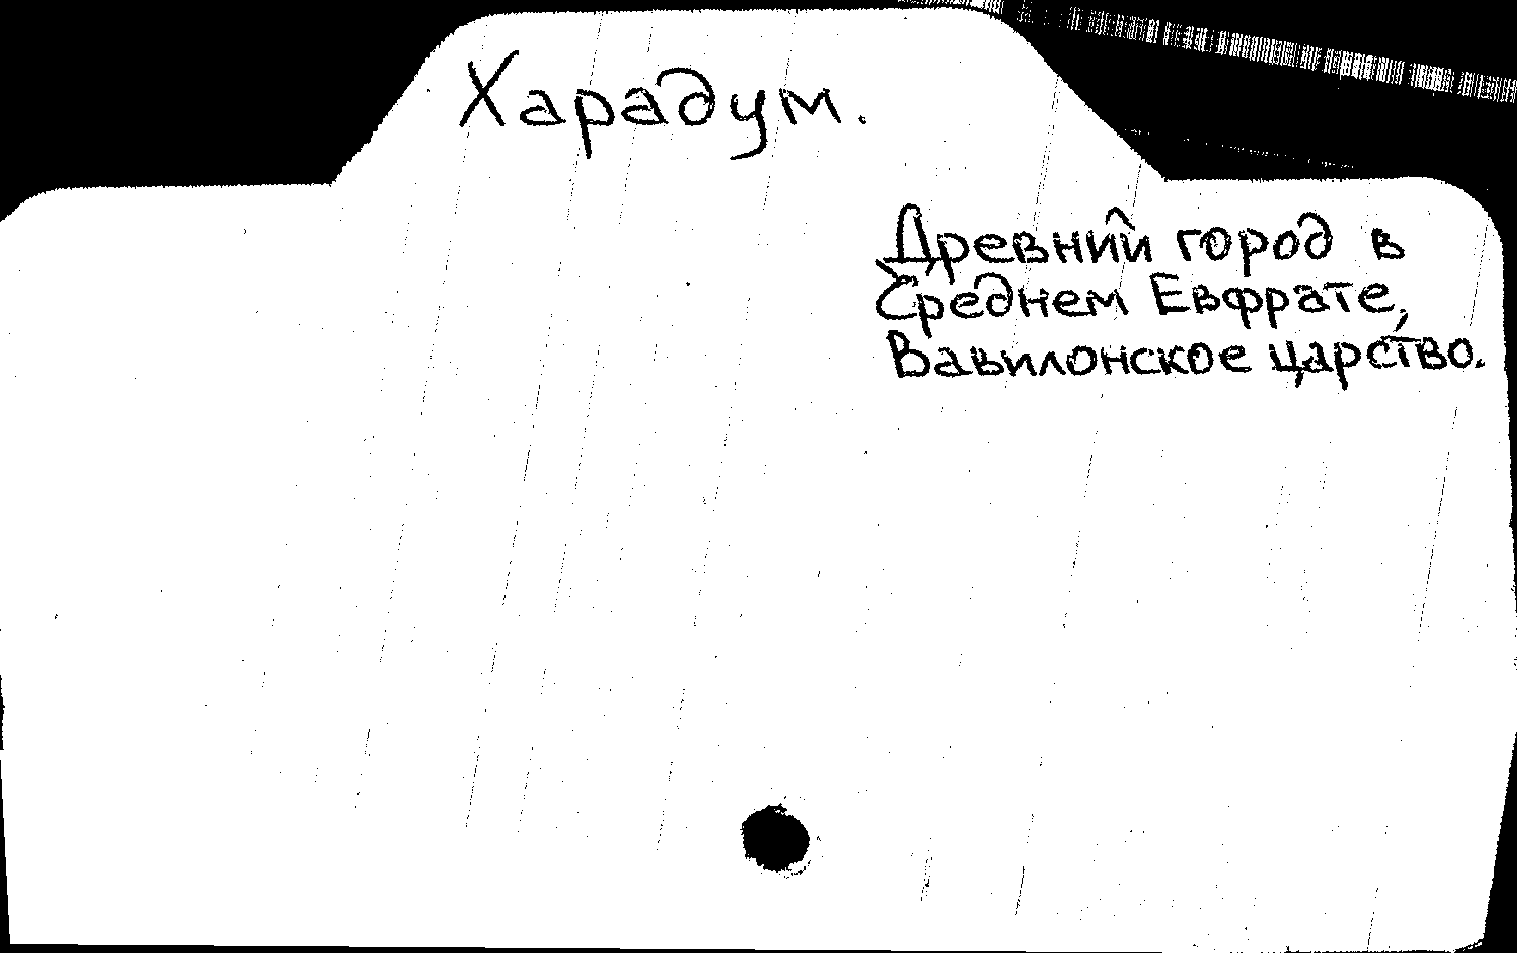 Харадум.
Древний город в
Среднем Евфрате,
Вавилонское царство.